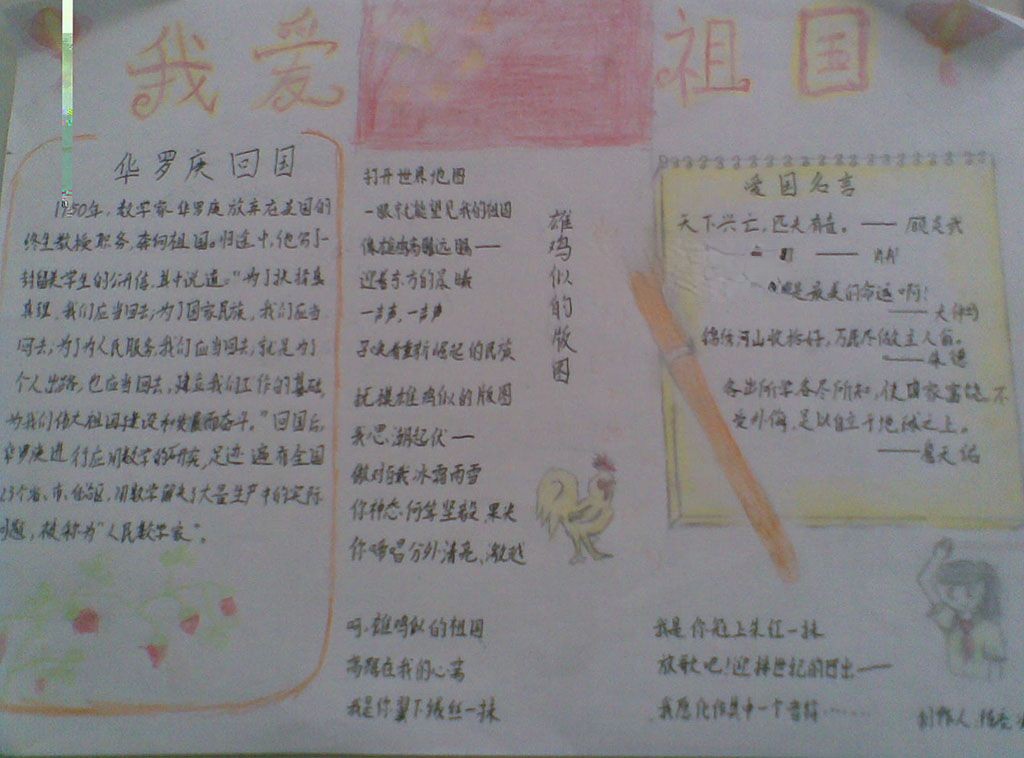 我爱祖国
华罗庚回国
1950年,数学家华罗庚放弃在美国的
终生教授职务,奔向祖国。归途中,他写了一
封留美学生的公开信,其中说道:"为了抉择真
真理,我们应当回去;为了国家民族,我们应当
回去;为了为人民服务,我们应当回去;就是为了
个人出路,也应当回去,建立我们工作的基础,
为我们伟大祖国建设和发展而奋斗。"回国后,
华罗庚进行应用数学的研究,足迹遍布全国
23个省、市、自治区,用数学解决了大量生产中的实际
问题,被称为"人民数学家"。
雄鸡似的版图
打开世界地图
一眼就能望见我的祖国
像雄鸡高瞻远瞩——
迎着东方的晨曦
一声声,一声声
呼唤着重新崛起的民族
抚摸雄鸡似的版图
我思潮起伏—
傲对着冰霜雨雪
你神态何等坚毅、果决
你啼唱分外清亮、激越
啊,雄鸡似的祖国
高踞在我的心窝
我是你翼下绒丝一抹
我是你冠上朱红一抹
放歌吧!迎接世纪的日出——
我愿化作其中一个音符……
爱国名言
天下兴亡,匹夫有责。——顾炎武
是最美的命运啊!
——大仲马
锦绣河山收拾好,万民尽做主人翁。
——朱德
各出所学各尽所知,使国家富强不
受外侮,足以自立于地球之上。
——詹天佑
制作人